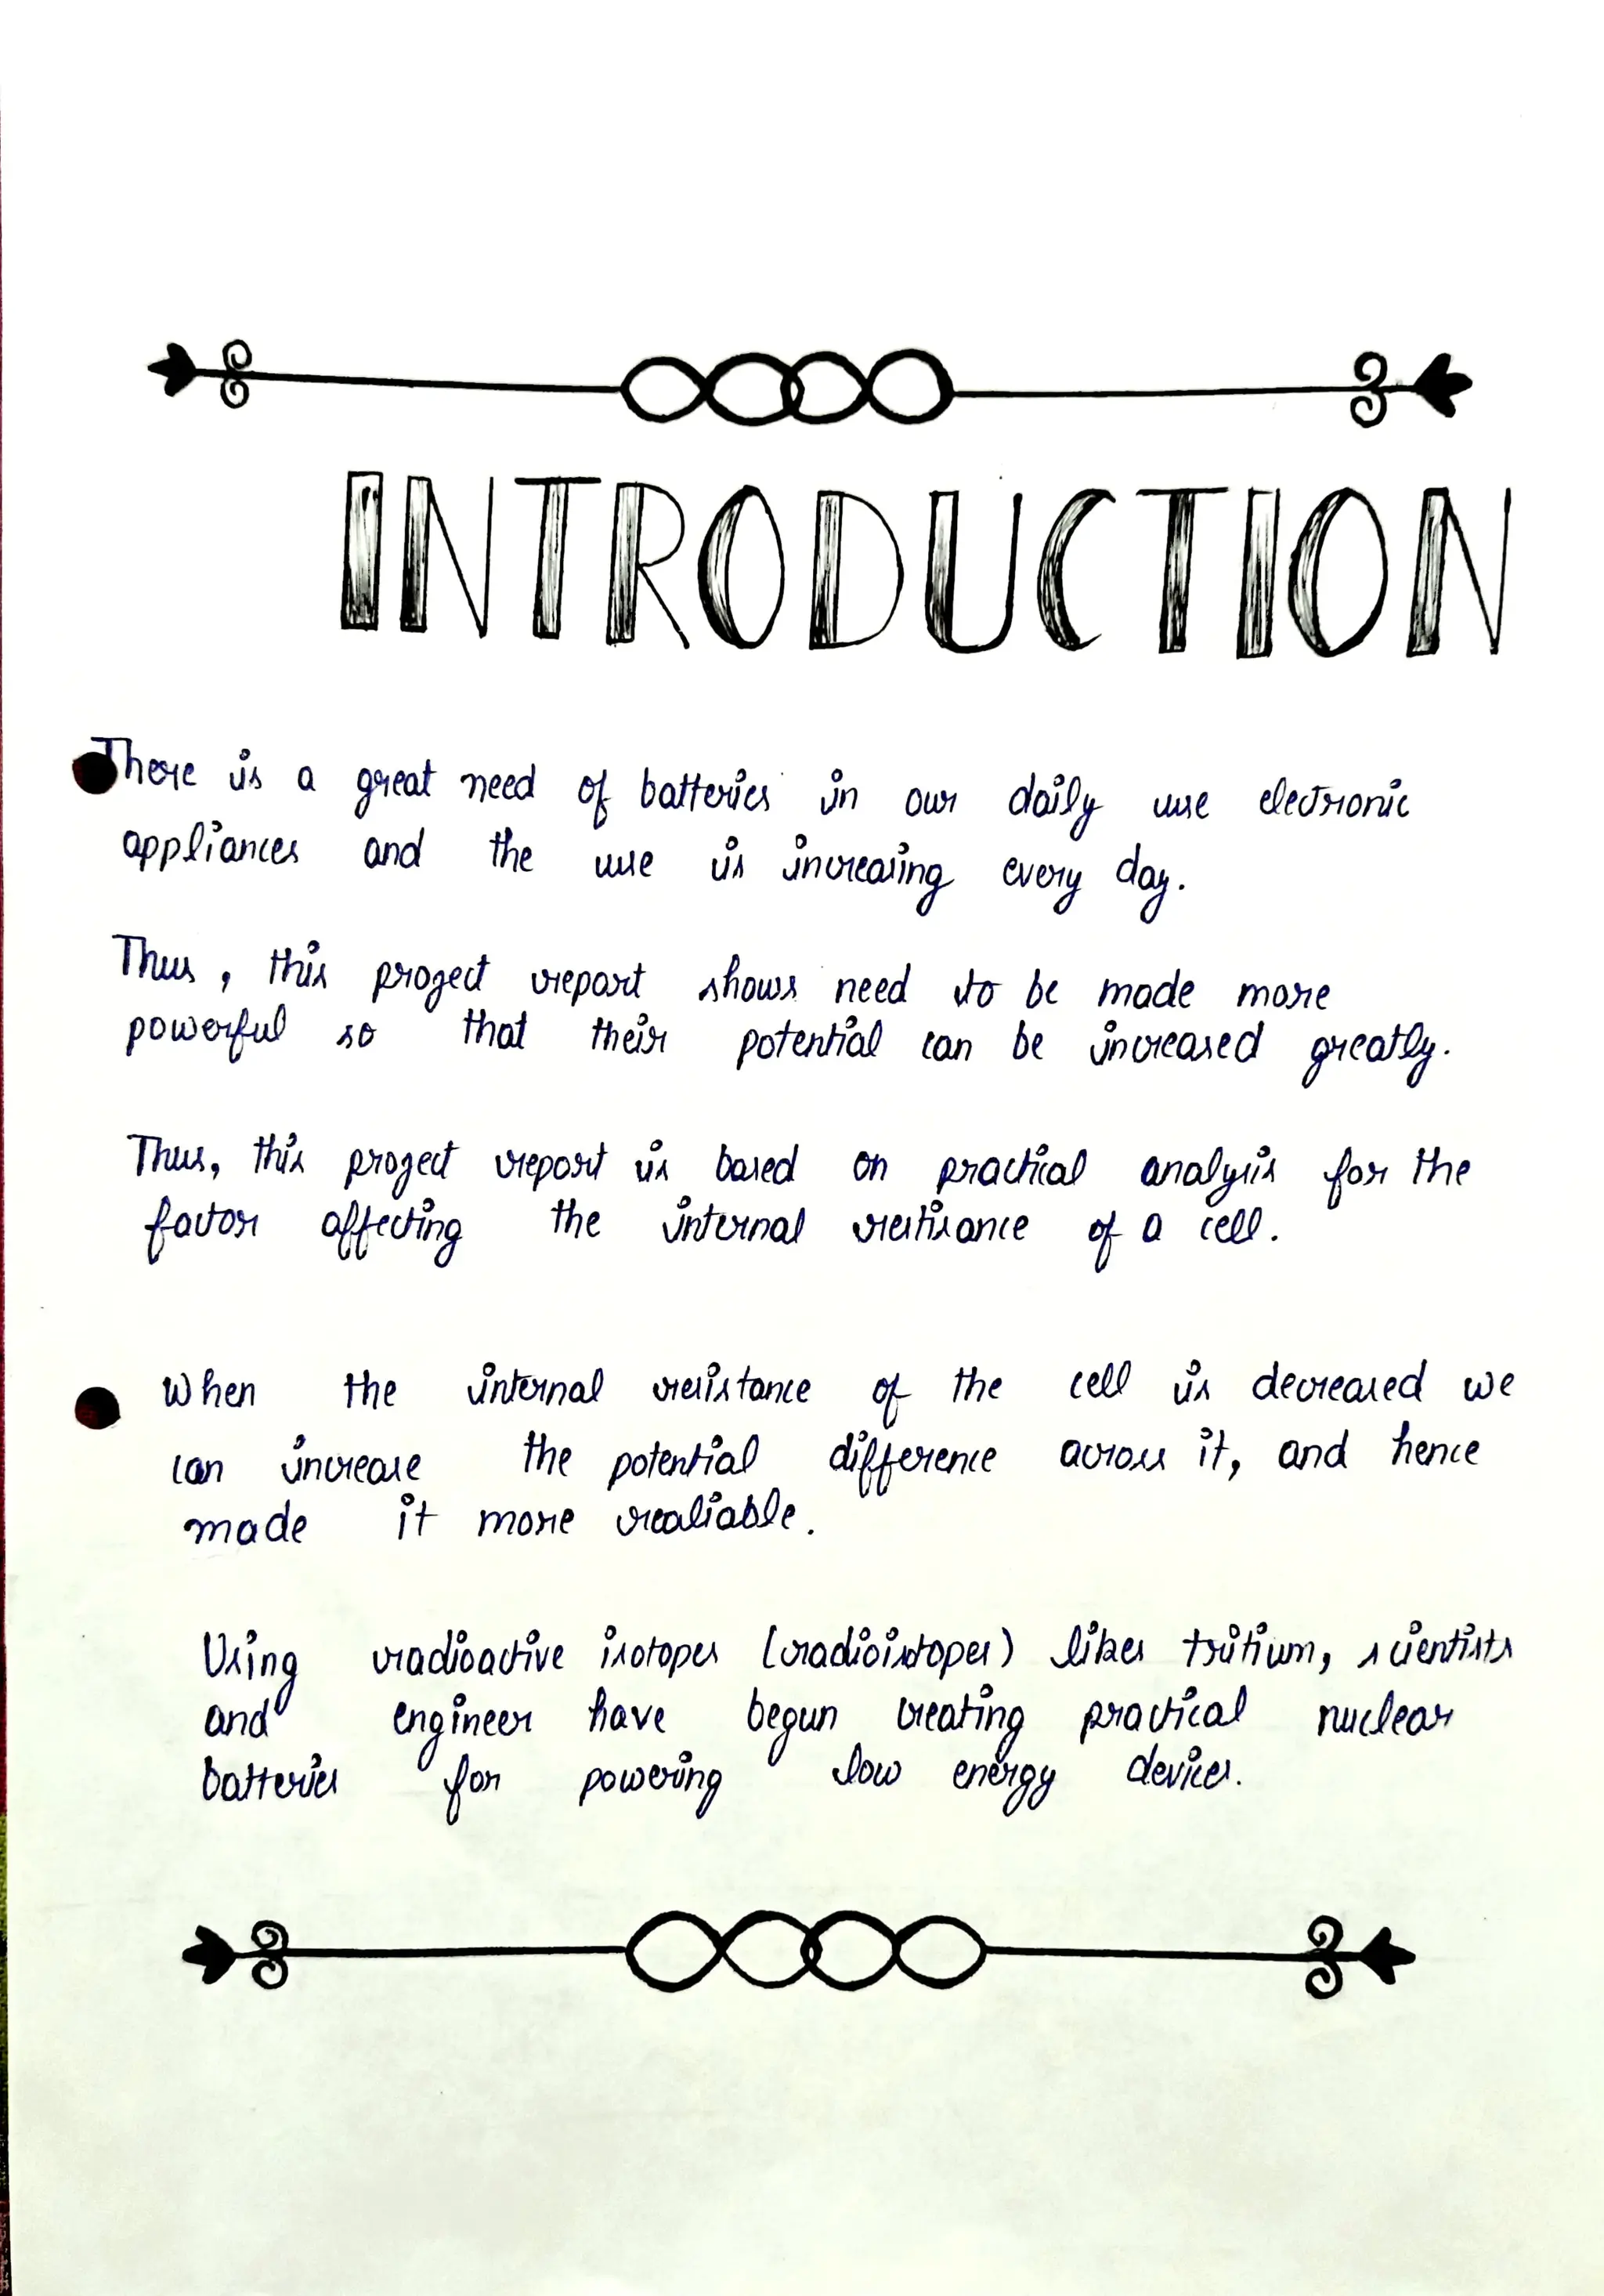 INTRODUCTION
There is a great need of batteries in our daily use electronic
appliances and the use is increasing every day.
Thus, this progect report shows need to be made more
powerful so that their potential can be increased greatly.
Thus, this progect report is based on practical analysis for the
factor affecting the internal restisance of a cell.
When the internal resistance of the cell is decreased we
can increase the potential difference across it, and hence
made it more realiable.
Using radioactive isotopes (radioisotopes) likes tritium, scientists
and engineer have begun creating practical nuclear
batteries for powering low energy devices.